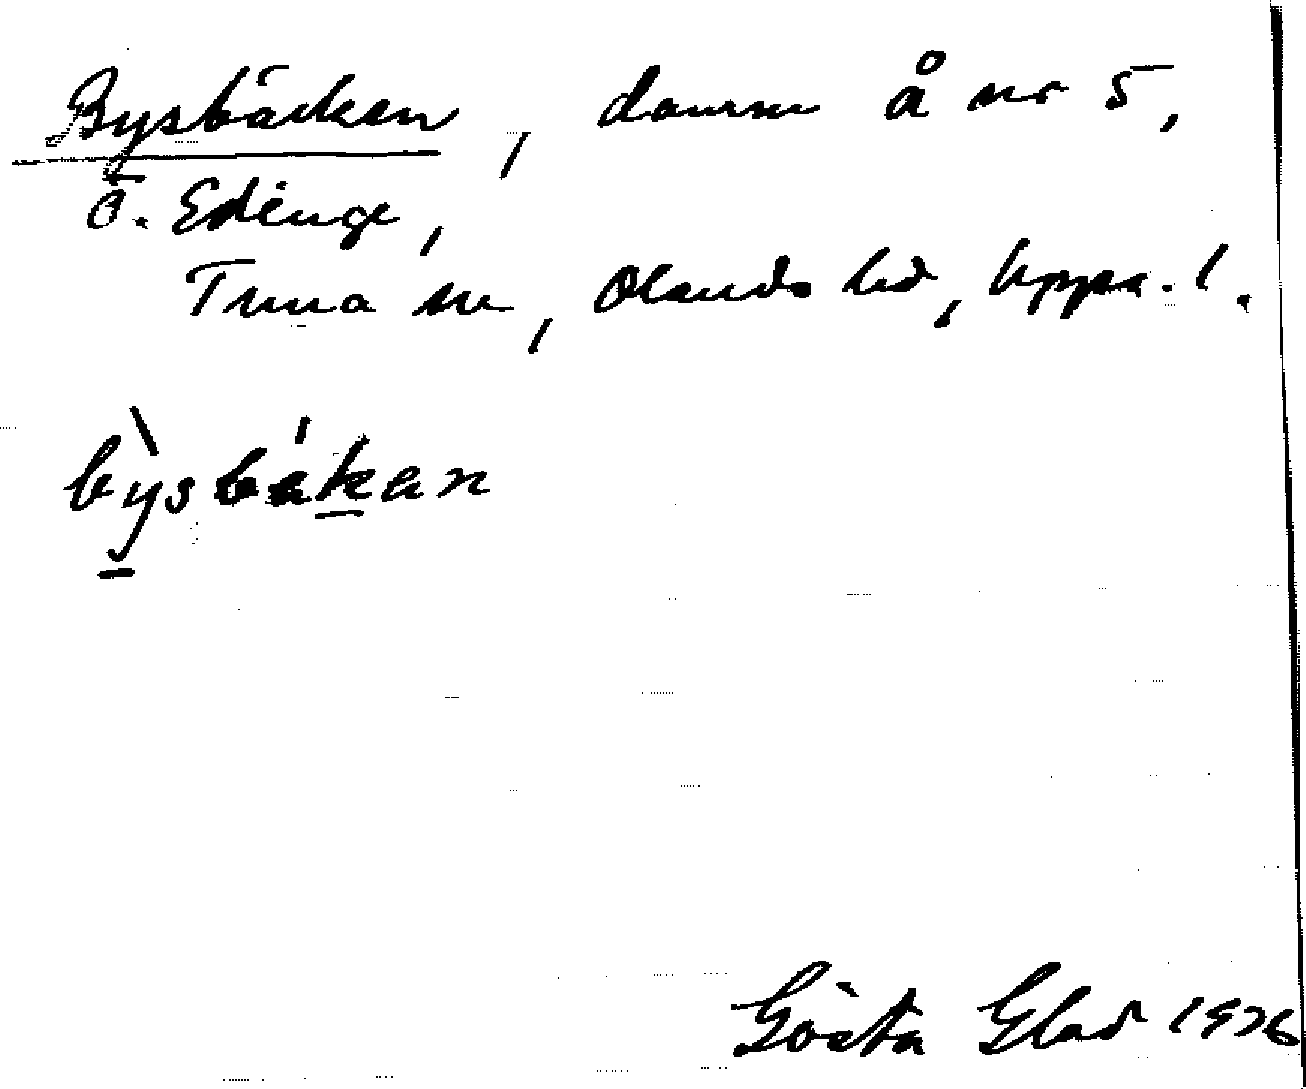 Bysbäcken, damm å nr 5,
Ö. Edinge,
Tuna sn, Olands hd, Uppsa. l.
bysbäkan
Gösta Glad 1926